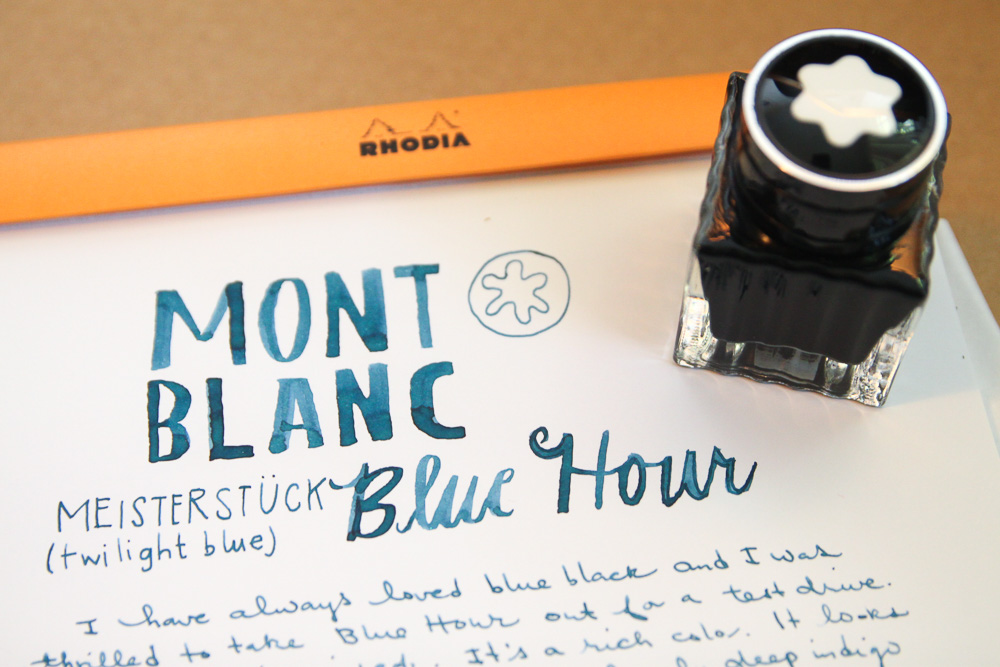 RHODIA
MONT
BLANC
MEISTERSTÜCK Blue Hour
(twilight blue)
I have always loved blue black and I was
thrilled to take Blue Hour out for a test drive.
It's a rich color. It looks
deep indigo